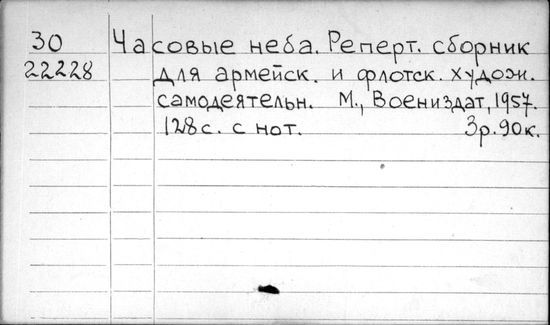 30 Часовые неба. Реперт. сборник
22228 для армейск. и флотск. худож.
самодеятельн. М., Воениздат, 1957.
128с. с нот. 3р.90к.